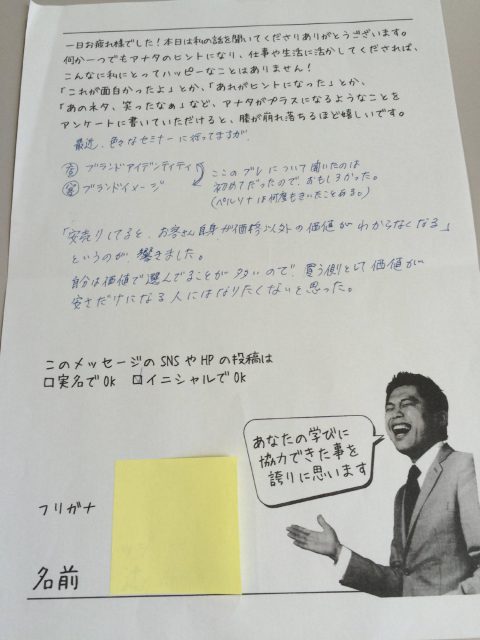 一日お疲れ様でした！本日は私の話を聞いてくださりありがとうございます。
何か一つでもアナタのヒントになり、仕事や生活に活かしてくだされば、
こんなに私にとってハッピーなことはありません！
「これが面白かったよ」とか、「あれがヒントになった」とか、
「あのネタ、笑ったなぁ」など、アナタがプラスになるようなことを
アンケートに書いていただけると、膝が崩れ落ちるほど嬉しいです。
最近、色々なセミナーに行ってますが、
ブランドアイデンティティ
ブランドイメージ
このブレについて聞いたのは
初めてだったので、おもしろかった。
(ペルソナは何度もきいたことある。)
「安売りしてると、お客さん自身が価格以外の価値がわからなくなる」
というのが響きました。
自分は価値で選んでることが多いので、買う側として価値が
安さだけになる人にはなりたくないと思った。
このメッセージのSNSやHPの投稿は
□実名でOK □イニシャルでOK
あなたの学びに
協力できた事を
誇りに思います
フリガナ
名前